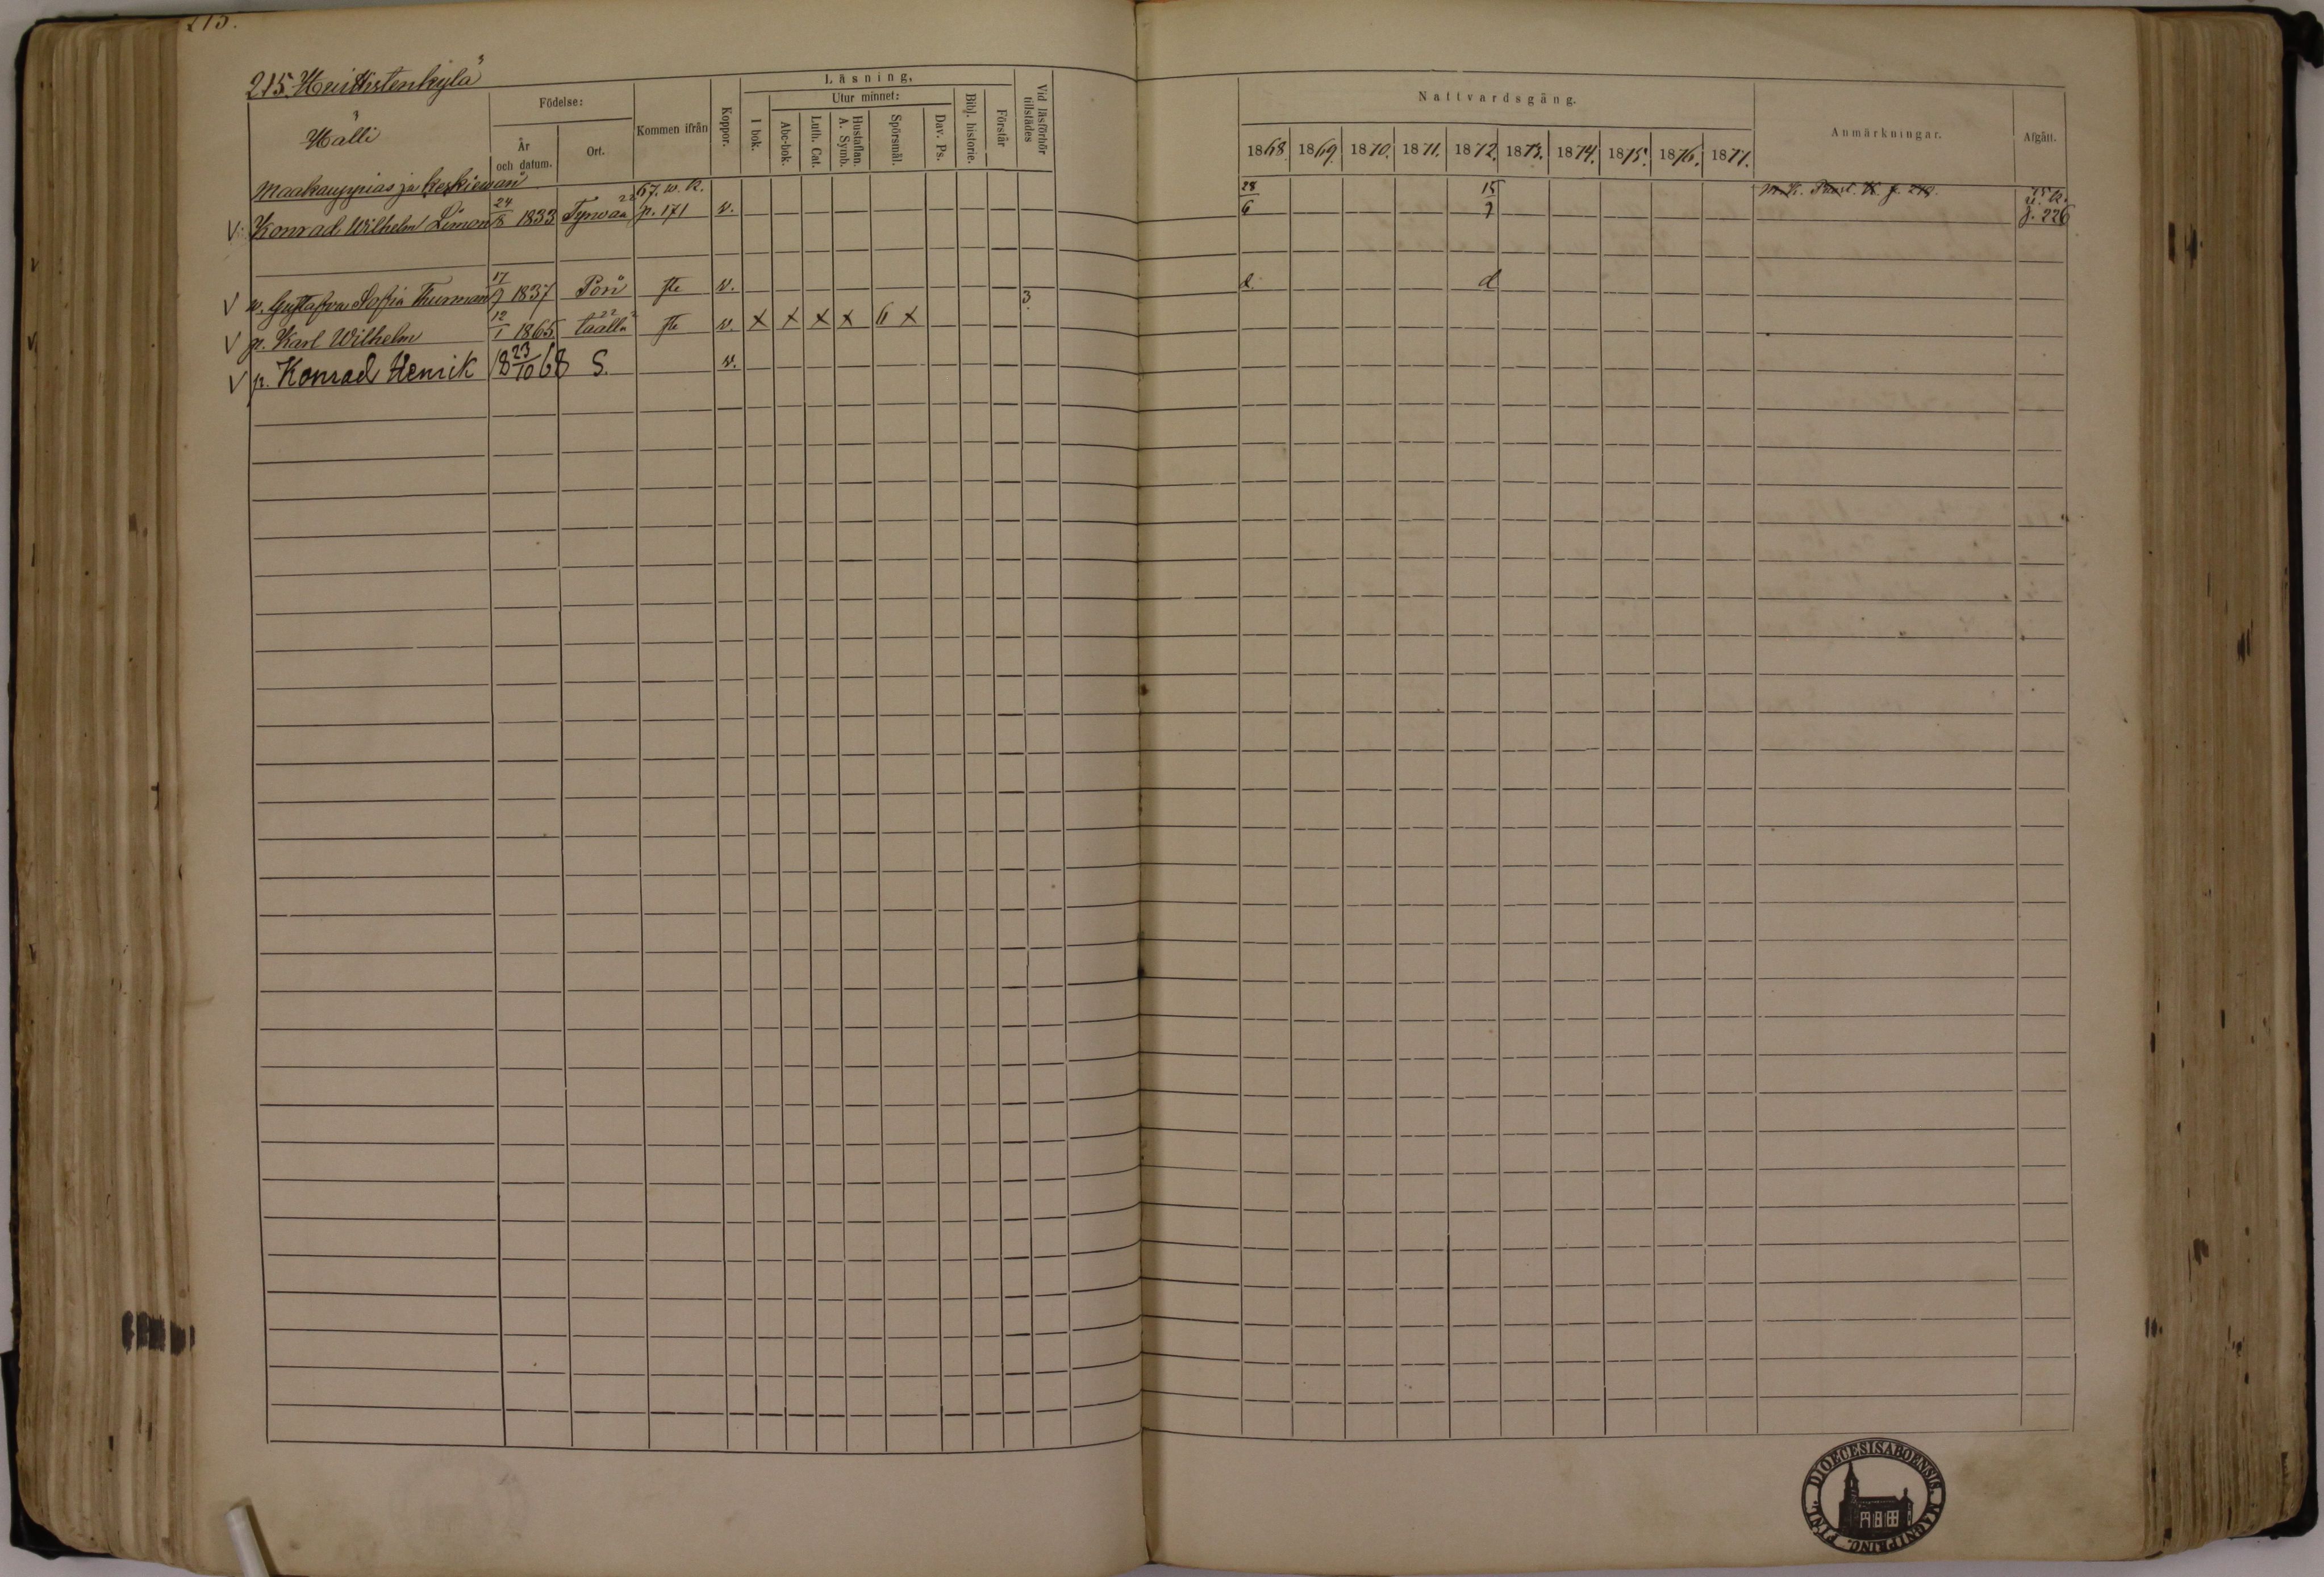 215.
215. Huittistenkylä
Halli
Födelse:
År och datum.
Ort.
Kommen ifrån
Koppor.
Läsning.
I bok.
Utur minnet:
Abc-bok.
Luth. Cat.
Hustaflan. A. Symb.
Spörsmål.
Dav. Ps.
Bibl. historie.
Förstår
Vid läsförhör tillstädes
Nattvardsgång.
1868. 1869. 1870. 1871. 1872. 1873. 1874. 1875. 1876. 1877.
Anmärkningar.
Afgått.
Maakauppias ja
V. Konrad Wilhelm Limon 24/8 1833 Tyrwaa 67. w. k. p. 171 v. 28/6 15/7 p. 226
V w. Gustafva Sofia Thurman 17/9 1837 Pori v. d. d
V p. Karl Wilhelm 12/1 1865 täällä v. x x x x 6 x 3.
V p. Konrad Henrik 18 23/10 68 S. v.
DIOECESIS ABOENSIS. MAGNI PRINC. FINL.